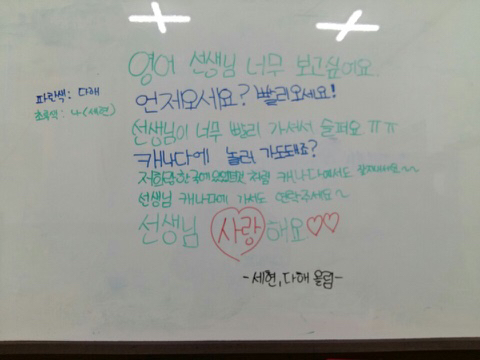 영어 선생님 너무 보고싶어요.
파란색: 다해
초록색: 나(세현)
언제오세요? 빨리오세요!
선생님이 너무 빨리 가셔서 슬퍼요 ㅠㅠ
캐나다에 놀러 가도돼죠?
처럼 캐나다에서도
선생님 캐나다에 가서도 연락주세요~
선생님 사랑해요♡♡
-세현, 다해 올림-